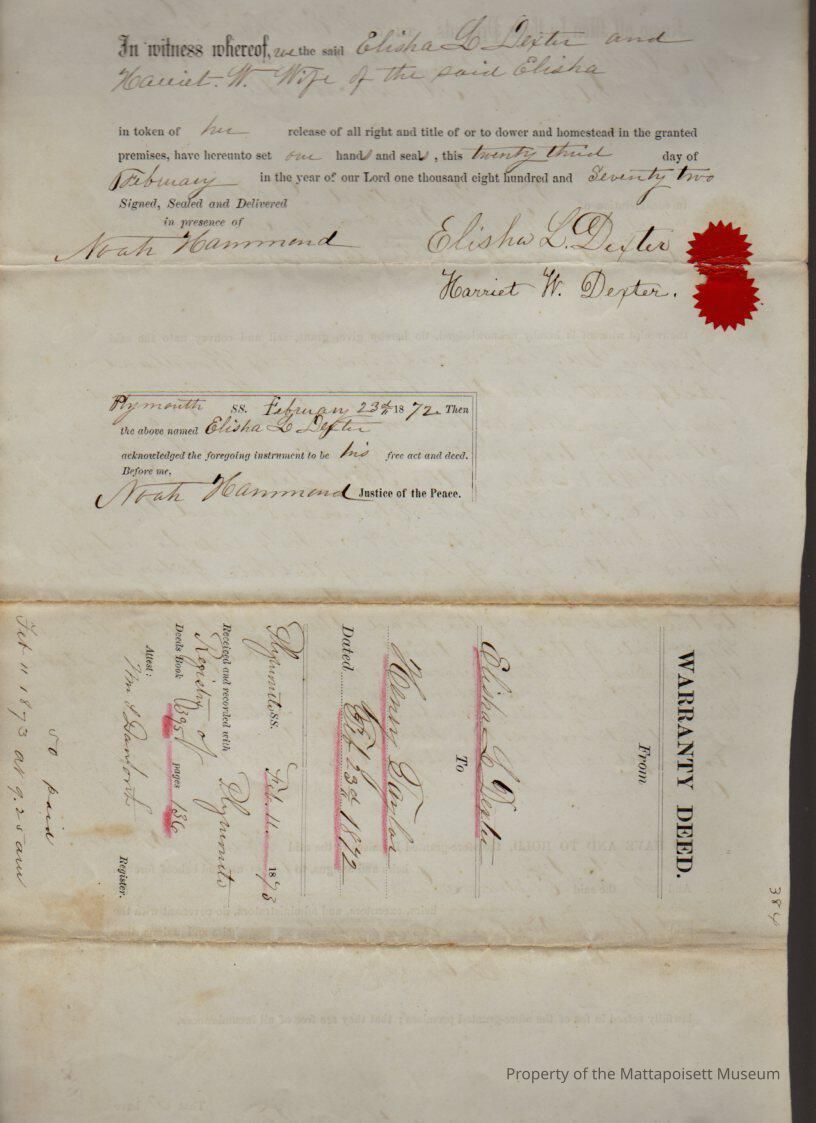 In witness whereof, we the said Elisha L Dexter and
Harriet. W. Wife of the said Elisha
in token of her release of all right and title of or to dower and homestead in the granted
premises, have hereunto set our hands and seals, this twenty third day of
February in the year of our Lord one thousand eight hundred and Seventy two
Signed, Sealed and Delivered
in presence of
Noah Hammond Elisha L. Dexter
Harriet W. Dexter.
Plymouth SS. February 23d 1872. Then
the above named Elisha L Dexter
acknowledged the foregoing instrument to be his free act and deed.
Before me,
Noah Hammond Justice of the Peace.
WARRANTY DEED.
From
Elisha L Dexter
To
Henry Taylor
Dated Feb 23d 1872
Plymouth SS. Feb. 11. 1873
Received and recorded with
Registry of Plymouth
Deeds Book 395 pages 136
Attest:
Wm S Danforth Register.
50 paid
Feb 11 1873 at 9.25 am
384
Property of the Mattapoisett Museum